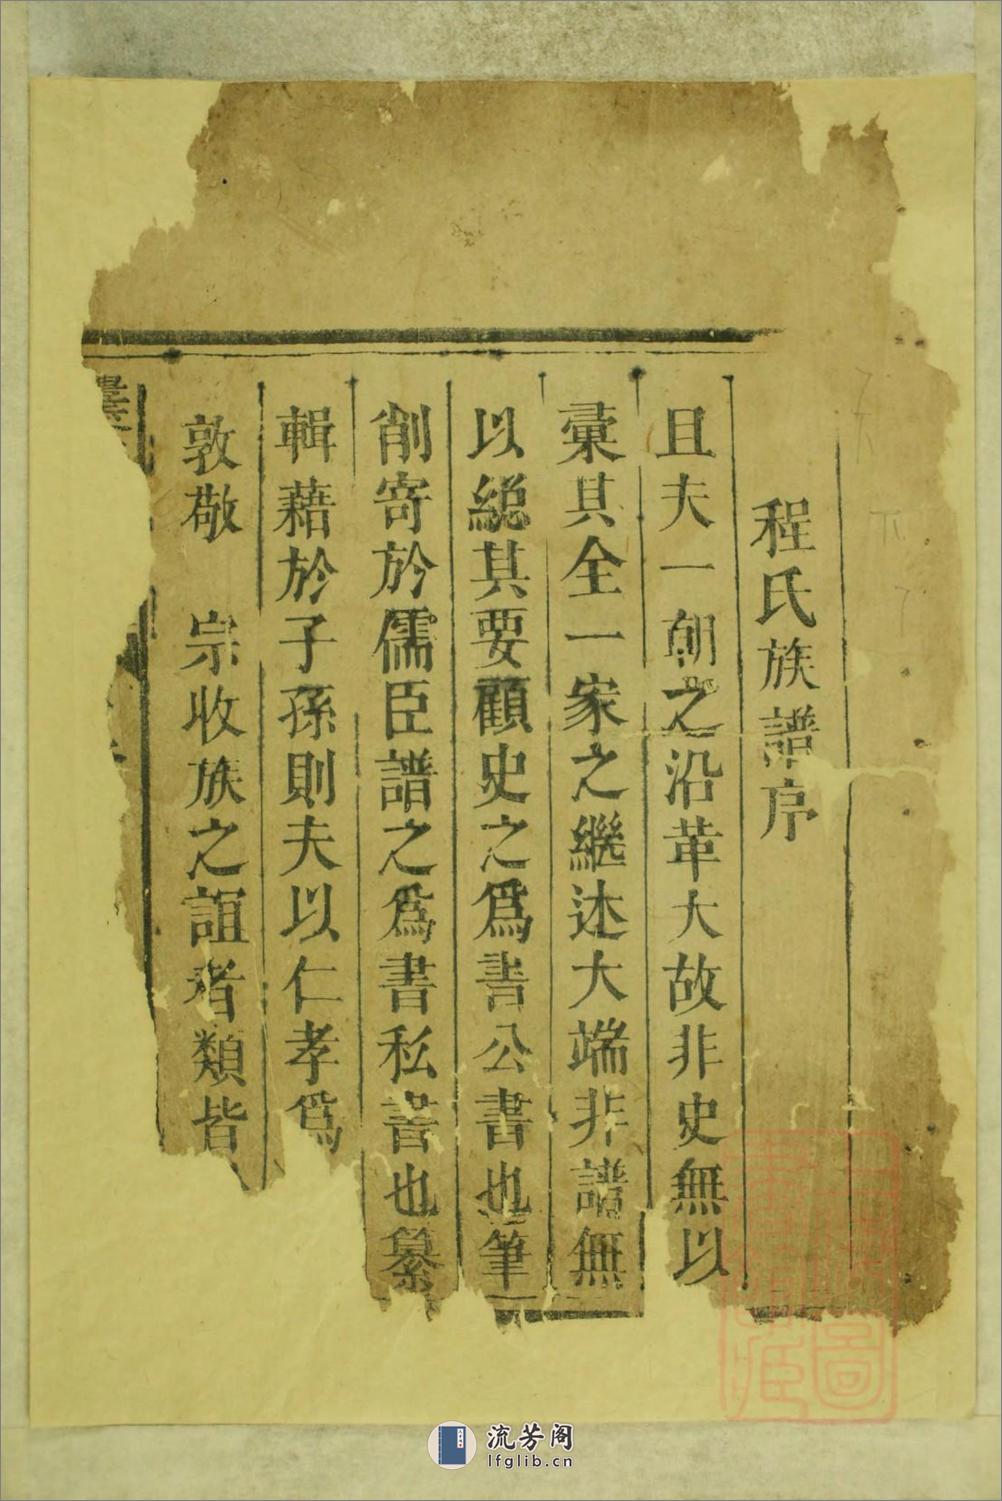 程氏族譜序
且夫一朝之沿革大故非史無以
彚其全一家之繼述大端非譜無
以總其要顧史之爲書公書也筆
削寄於儒臣譜之爲書私書也纂
輯藉於子孫則夫以仁孝爲
敦敬 宗收族之誼者類皆
流芳阁
lfglib.cn